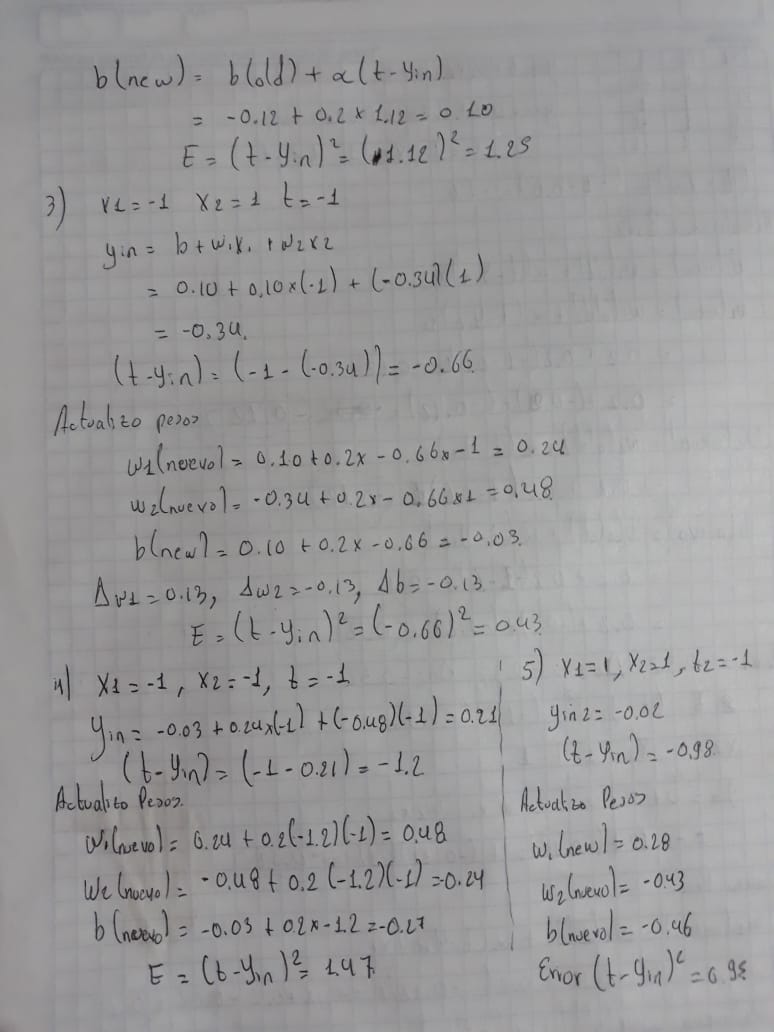 b(new) = b(old) + α(t - yin)
= -0.12 + 0.2 x 1.12 = 0.10
E = (t - yin)² = (1.12)² = 1.25
3) x1 = -1 x2 = 1 t = -1
yin = b + w1x1 + w2x2
= 0.10 + 0,10x(-1) + (-0.34)(1)
= -0.34.
(t - yin) = (-1 - (-0.34)) = -0.66
Actualizo pesos
w1(nuevo) = 0.10 + 0.2x - 0.66x - 1 = 0.24
w2(nuevo) = -0.34 + 0.2x - 0.66x1 = 0,48
b(new) = 0.10 + 0.2x - 0.66 = -0.03
Δw1 = 0.13, Δw2 = -0.13, Δb = -0.13
E = (t - yin)² = (-0.66)² = 0.43
4) x1 = -1, x2 = -1, t = -1
yin = -0.03 + 0.24x(-1) + (-0.48)(-1) = 0.21
(t - yin) = (-1 - 0.21) = -1.2
Actualizo Pesos.
w1(nuevo) = 0.24 + 0.2(-1.2)(-1) = 0.48
w2(nuevo) = -0.48 + 0.2(-1.2)(-1) = -0.24
b(nuevo) = -0.03 + 0.2x - 1.2 = -0.27
E = (t - yin)² = 1.47
5) x1 = 1, x2 = 1, t2 = -1
yin2 = -0.02
(t - yin) = -0.98
Actualizo Pesos
w1(new) = 0.28
w2(nuevo) = -0.43
b(nuevo) = -0.46
Error (t - yin)² = 0.95